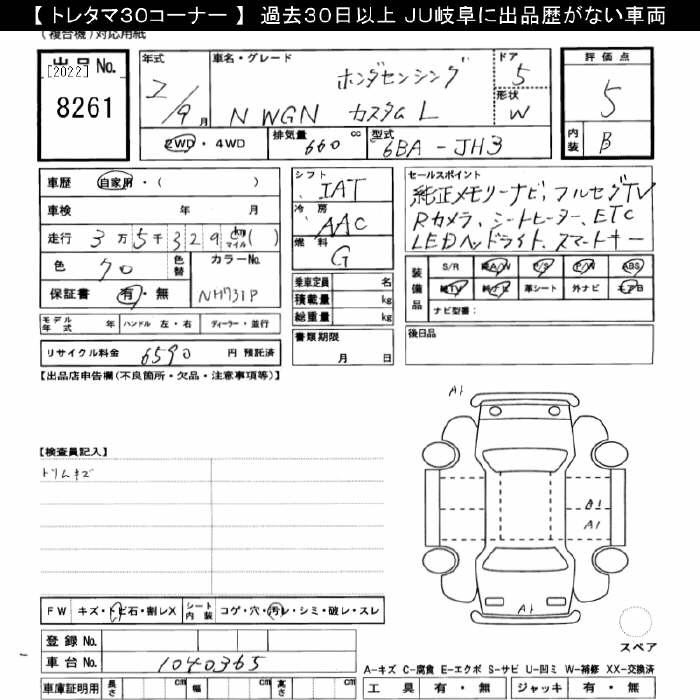 【 トレタマ30コーナー 】 過去30日以上 JU岐阜に出品歴がない車両
(複合機)対応用紙
出品No.
[2022]
8261
年式
2/9月
車名・グレード
ホンダセンシング
N WGN カスタム L
ドア
5
形状
W
評価点
5
内装
B
2WD・4WD
排気量
660 cc
型式
6BA-JH3
車歴
自家用・( )
車検 年 月
走行 3万5千329 km マイル ( )
色 クロ
色替
カラーNo.
NH731P
保証書 有・無
モデル年式 年
ハンドル 左・右
ディーラー・並行
リサイクル料金 6590 円 預託済
シフト
IAT
冷房
AAC
燃料
G
乗車定員 名
積載量 kg
総重量 kg
書類期限
月 日
セールスポイント
純正メモリーナビ、フルセグTV
Rカメラ、シートヒーター、ETC
LEDヘッドライト、スマートキー
装備品
S/R 純A/W P/S P/W ABS
純TV 純ナビ 革シート 外ナビ エアB
ナビ型番:
後日品
【出品店申告欄(不良箇所・欠品・注意事項等)】
【検査員記入】
トリムキズ
A1
B1
A1
A1
スペア
FW キズ・トビ石・割レX
シート内装
コゲ・穴・汚レ・シミ・破レ・スレ
登録No.
車台No. 1040365
車庫証明用 長さ cm 幅 cm 高さ cm
A-キズ C-腐食 E-エクボ S-サビ U-凹ミ W-補修 XX-交換済
工具 有・無 ジャッキ 有・無